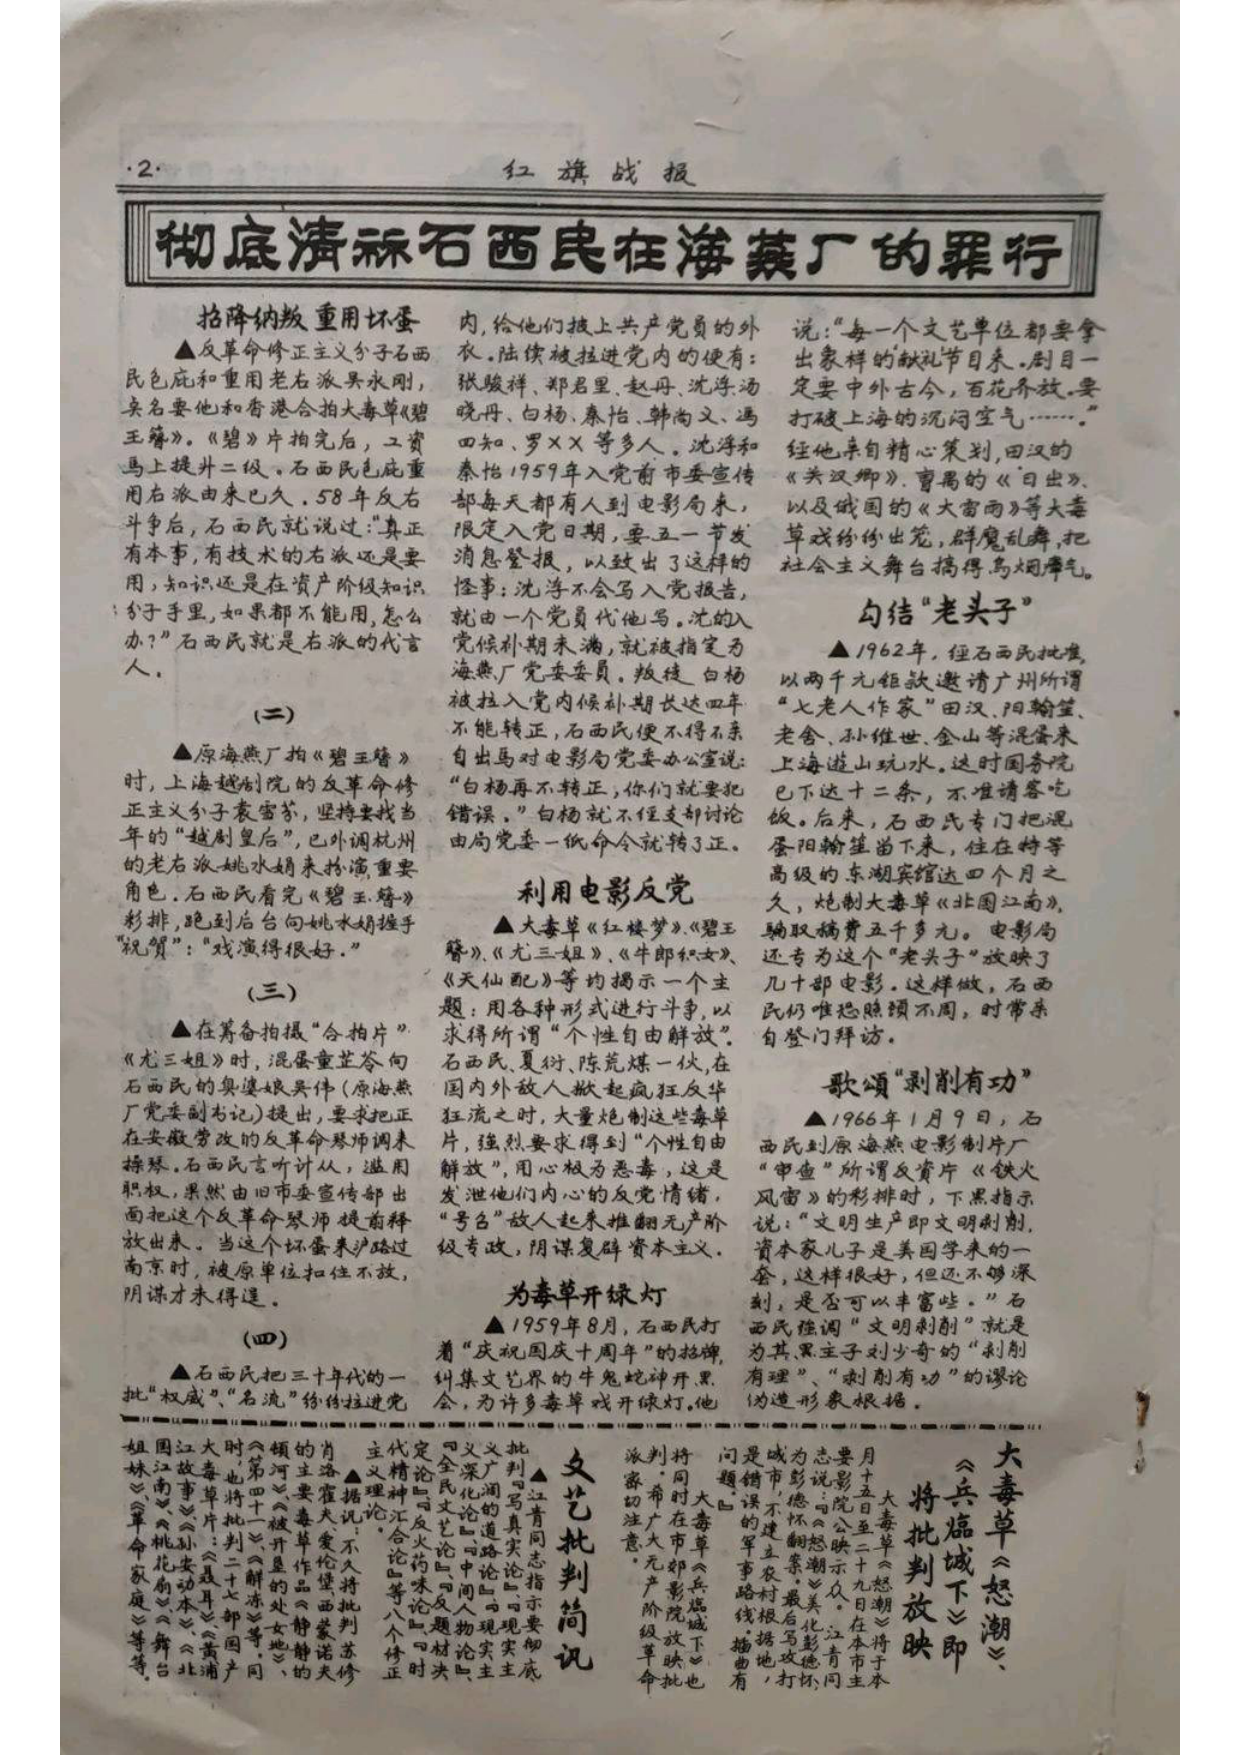 ·2·
红旗战报
彻底清祘石西民在海燕厂的罪行
招降纳叛 重用坏蛋
▲反革命修正主义分子石西
民包庇和重用老右派吴永刚,
点名要他和香港合拍大毒草《碧
玉簪》。《碧》片拍完后，工资
马上提升二级。石西民包庇重
用右派由来已久。58年反右
斗争后，石西民就说过："真正
有本事，有技术的右派还是要
用，知识还是在资产阶级知识
分子手里，如果都不能用，怎么
办？"石西民就是右派的代言
人。
(二)
▲原海燕厂拍《碧玉簪》
时，上海越剧院的反革命修
正主义分子袁雪芬，坚持要找当
年的"越剧皇后"，已外调杭州
的老右派姚水娟来扮演重要
角色。石西民看完《碧玉簪》
彩排，跑到后台向姚水娟握手
"祝贺"："戏演得很好。"
(三)
▲在筹备拍摄"合拍片"
《尤三姐》时，混蛋童芷苓向
石西民的臭婆娘吴伟(原海燕
厂党委副书记)提出，要求把正
在安徽劳改的反革命琴师调来
操琴。石西民言听计从，滥用
职权，果然由旧市委宣传部出
面把这个反革命琴师提前释
放出来。当这个坏蛋来沪路过
南京时，被原单位扣住不放，
阴谋才未得逞。
(四)
▲石西民把三十年代的一
批"权威"、"名流"纷纷拉进党
内，给他们披上共产党员的外
衣。陆续被拉进党内的便有：
张骏祥、郑君里、赵丹、沈浮、汤
晓丹、白杨、秦怡、韩尚义、冯
四知、罗××等多人。沈浮和
秦怡1959年入党前市委宣传
部每天都有人到电影局来，
限定入党日期，要五一节发
消息登报，以致出了这样的
怪事：沈浮不会写入党报告，
就由一个党员代他写。沈的入
党候补期未满，就被指定为
海燕厂党委委员。叛徒白杨
被拉入党内候补期长达四年
不能转正，石西民便不得不亲
自出马对电影局党委办公室说：
"白杨再不转正，你们就要犯
错误。"白杨就不经支部讨论
由局党委一纸命令就转了正。
利用电影反党
▲大毒草《红楼梦》、《碧玉
簪》、《尤三姐》、《牛郎织女》、
《天仙配》等均揭示一个主
题：用各种形式进行斗争，以
求得所谓"个性自由解放"。
石西民、夏衍、陈荒煤一伙，在
国内外敌人掀起疯狂反华
狂流之时，大量炮制这些毒草
片，强烈要求得到"个性自由
解放"，用心极为恶毒，这是
发泄他们内心的反党情绪，
"号召"敌人起来推翻无产阶
级专政，阴谋复辟资本主义。
为毒草开绿灯
▲1959年8月，石西民打
着"庆祝国庆十周年"的招牌，
纠集文艺界的牛鬼蛇神开黑
会，为许多毒草戏开绿灯。他
说："每一个文艺单位都要拿
出象样的'献礼'节目来。剧目一
定要中外古今，百花齐放。要
打破上海的沉闷空气……。"
经他亲自精心策划，田汉的
《关汉卿》、曹禺的《日出》、
以及俄国的《大雷雨》等大毒
草戏纷纷出笼，群魔乱舞，把
社会主义舞台搞得乌烟瘴气。
勾结"老头子"
▲1962年，经石西民批准，
以两千元钜款邀请广州所谓
"七老人作家"田汉、阳翰笙、
老舍、孙维世、金山等混蛋来
上海遊山玩水。这时国务院
已下达十二条，不准请客吃
饭。后来，石西民专门把混
蛋阳翰笙留下来，住在特等
高级的东湖宾馆达四个月之
久，炮制大毒草《北国江南》，
骗取稿费五千多元。电影局
还专为这个"老头子"放映了
几十部电影。这样做，石西
民仍唯恐照顾不周，时常亲
自登门拜访。
歌颂"剥削有功"
▲1966年1月9日，石
西民到原海燕电影制片厂
"审查"所谓反资片《铁火
风雷》的彩排时，下黑指示
说："文明生产即文明剥削，
资本家儿子是美国学来的一
套，这样很好，但还不够深
刻，是否可以丰富些。"石
西民强调"文明剥削"就是
为其黑主子刘少奇的"剥削
有理"、"剥削有功"的谬论
伪造形象根据。
大毒草《怒潮》、
《兵临城下》即
将批判放映
大毒草《怒潮》将于本
月十五日至二十九日在本市主
要影院公映示众。江青同
志说：『《怒潮》美化彭德怀，
为彭德怀翻案。最后写攻打
城市，不建立农村根据地，
是错误的军事路线。插曲有
问题。』
大毒草《兵临城下》也
将同时在市郊影院放映批
判。希广大无产阶级革命
派密切注意。
文艺批判简讯
▲江青同志指示要彻底
批判『写真实论』、『现实主
义广阔的道路论』、『现实主
义深化论』、『中间人物论』、
『全民文艺论』、『反题材决
定论』、『反火药味论』、『时
代精神汇合论』等八个修正
主义理论。
▲据说：不久将批判苏修
肖洛霍夫、爱伦堡、西蒙诺夫
的主要毒草作品《静静的
顿河》、《被开垦的处女地》、
《第四十一》、《解冻》等。同
时，也将批判二十七部国产
大毒草片：《聂耳》、《黄浦
江故事》、《孙安动本》、《北
国江南》、《桃花扇》、《舞台
姐妹》、《革命家庭》等等。